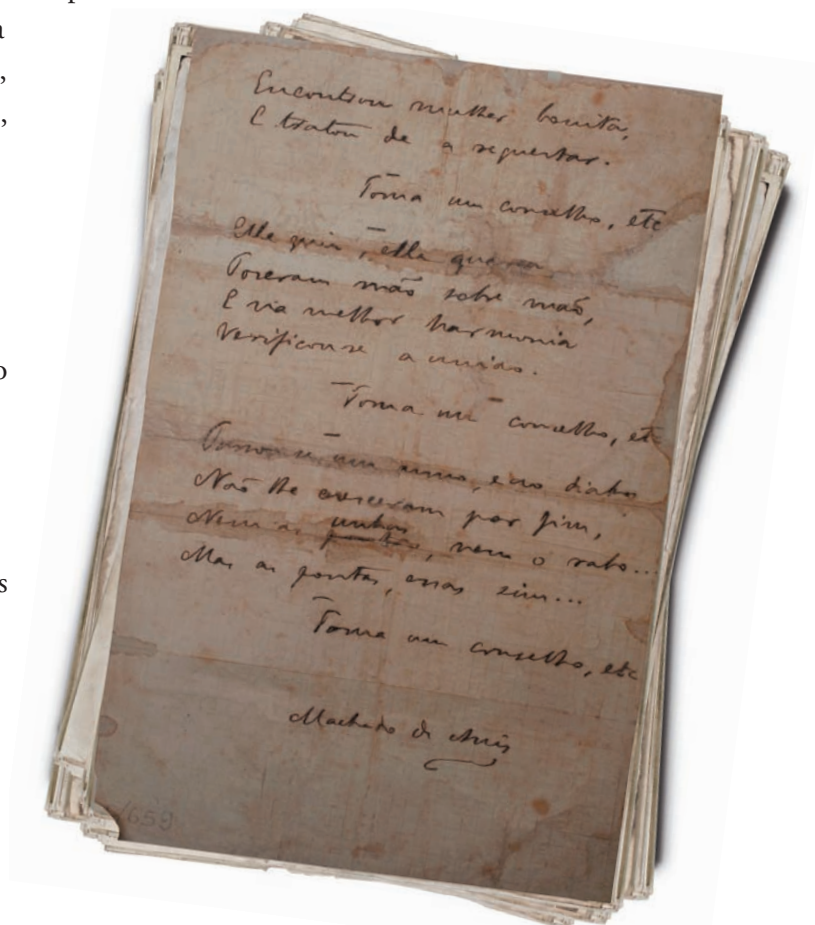 a
,
,
o
s
Encontrou mulher bonita,
E tratou de a requestar.
Toma um conselho, etc
Elle quiz, ella queria
Poseram mão sobre mão,
E na melhor harmonia
Verificou-se a união.
Toma um conselho, etc
Passou-se um anno, e ao diabo
Não lhe cresceram por fim,
Nem as unhas, nem o rabo...
Mas as pontas, essas sim...
Toma um conselho, etc
Machado de Assis
1659